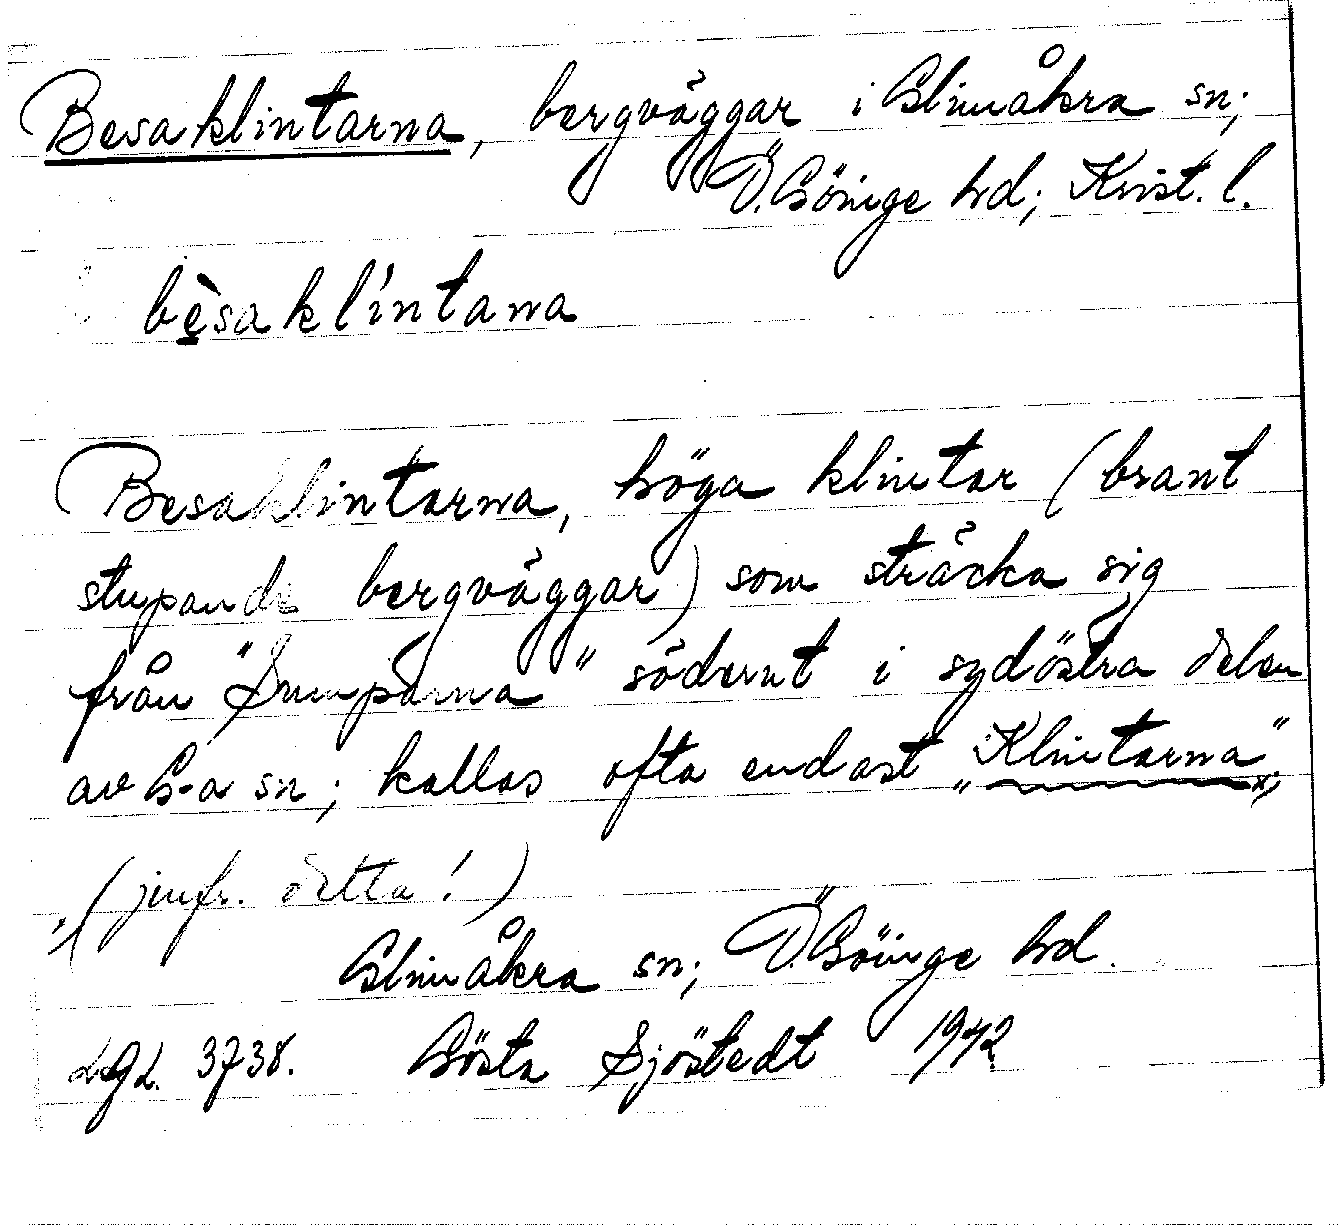 Besaklintarna, bergväggar i Glimåkra sn;
Ö. Göinge hd; Krist. l.
bèsaklíntana
Besaklintarna, höga klintar (brant
stupande bergväggar) som sträcka sig
från "Sumparna" söderut i sydöstra delen
av G-a sn; kallas ofta endast „Klintarna",
(jmfr. detta!)
Glimåkra sn; Ö. Göinge hd.
LGL. 3738. Gösta Sjöstedt 1942